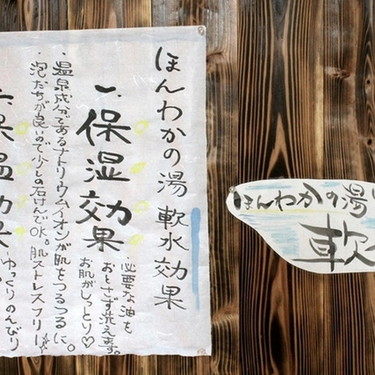 ほんわかの湯 軟水効果
一.保湿効果
・必要な油を
おとさず洗えます。
お肌がしっとり♡
・温泉成分であるナトリウムイオンが肌をつるつるに。
・泡だちが良いので少しの石けんでOK。肌ストレスフリー
保温効果
ゆっくりのんびり
ほんわかの湯
軟